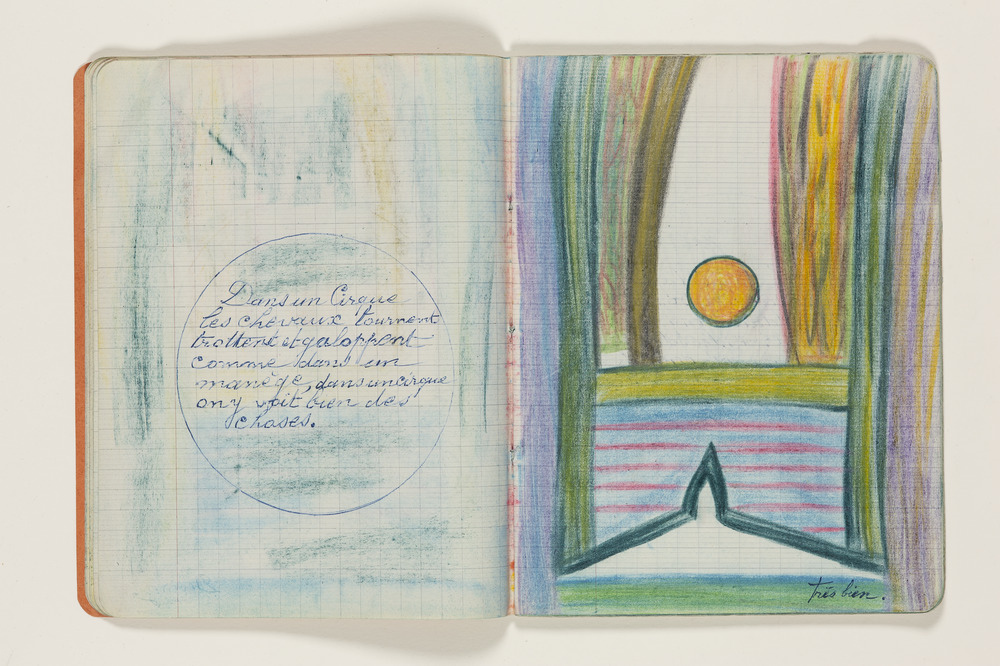 Dans un Cirque
les chevaux tournent
trottent et galoppent
comme dans un
manège, dans un cirque
on y voit bien des
choses.
très bien.